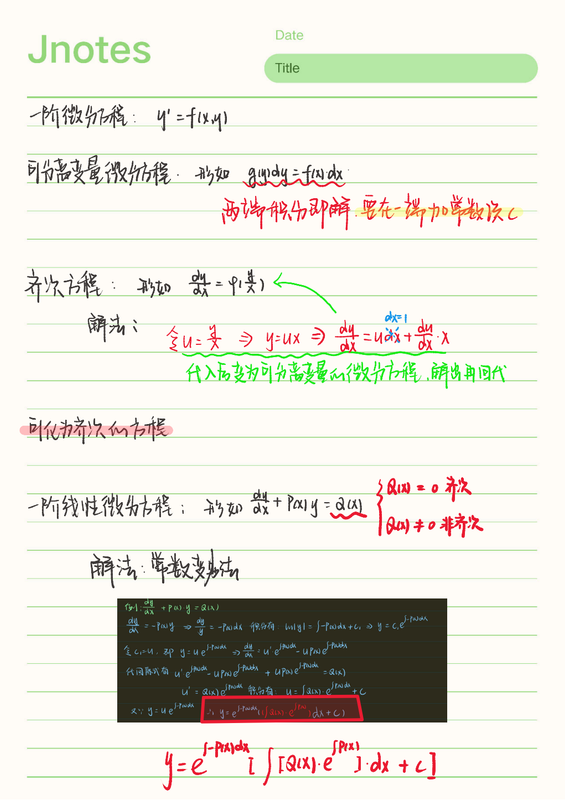 Jnotes
Date
Title
一阶微分方程： y' = f(x,y)
可分离变量微分方程. 形如 g(y)dy = f(x)dx
两端积分即解. 要在一端加常数项C
齐次方程： 形如 dy/dx = φ(y/x)
dx=1
解法： 令u = y/x ⇒ y=ux ⇒ dy/dx = u dx + du/dx · x
代入后变为可分离变量的微分方程, 解出再回代
可化为齐次的方程
一阶线性微分方程； 形如 dy/dx + P(x)y = Q(x) { Q(x) = 0 齐次
Q(x) ≠ 0 非齐次
解法：常数变易法
dy/dx + P(x)·y = Q(x)
dy/dx = -P(x)y ⇒ dy/y = -P(x)dx 积分有: ln|y| = ∫-P(x)dx + C₁ ⇒ y = C₁e^∫-P(x)dx
令C₁=u. 即 y = u e^∫-P(x)dx ⇒ dy/dx = u' e^∫-P(x)dx - uP(x)e^∫-P(x)dx
代回原式有 u' e^∫-P(x)dx - uP(x)e^∫-P(x)dx + uP(x)e^∫-P(x)dx = Q(x)
u' = Q(x)e^∫P(x)dx 积分有: u = ∫Q(x)·e^∫P(x)dx + C
又∵ y = u e^∫-P(x)dx ∴ y = e^∫-P(x)dx (∫Q(x)·e^∫P(x) dx + C)
y = e^∫-P(x)dx [ ∫[Q(x)·e^∫P(x)]·dx + C]